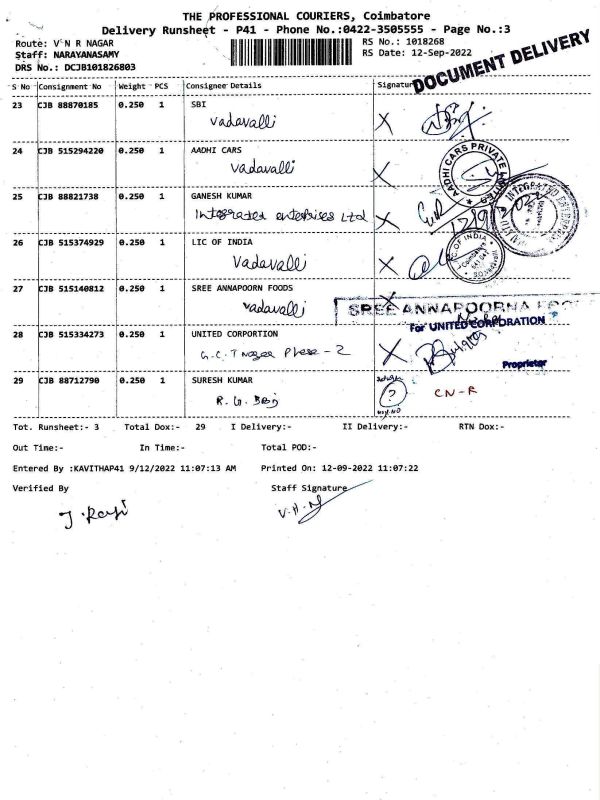 THE PROFESSIONAL COURIERS, Coimbatore
Delivery Runsheet - P41 - Phone No.:0422-3505555 - Page No.:3
Route: V N R NAGAR
RS No.: 1018268
Staff: NARAYANASAMY
RS Date: 12-Sep-2022
DRS No.: DCJB101826803
DOCUMENT DELIVERY
S No Consignment No Weight PCS Consignee Details Signature
23 CJB 88870185 0.250 1 SBI
Vadavalli
24 CJB 515294220 0.250 1 AADHI CARS
Vadavalli
AADHI CARS PRIVATE LIMITED
25 CJB 88821738 0.250 1 GANESH KUMAR
Integrated enterprises Ltd
26 CJB 515374929 0.250 1 LIC OF INDIA
Vadavalli
LIC OF INDIA
27 CJB 515140812 0.250 1 SREE ANNAPOORN FOODS
Vadavalli
SREE ANNAPOORNA
28 CJB 515334273 0.250 1 UNITED CORPORTION
For UNITED CORPORATION
G.C.T Nagar Phase - 2
Proprietor
29 CJB 88712790 0.250 1 SURESH KUMAR
?
CN-R
Tot. Runsheet:- 3 Total Dox:- 29 I Delivery:- II Delivery:- RTN Dox:-
Out Time:- In Time:- Total POD:-
Entered By :KAVITHAP41 9/12/2022 11:07:13 AM Printed On: 12-09-2022 11:07:22
Verified By Staff Signature
J. Ravi V.H.N